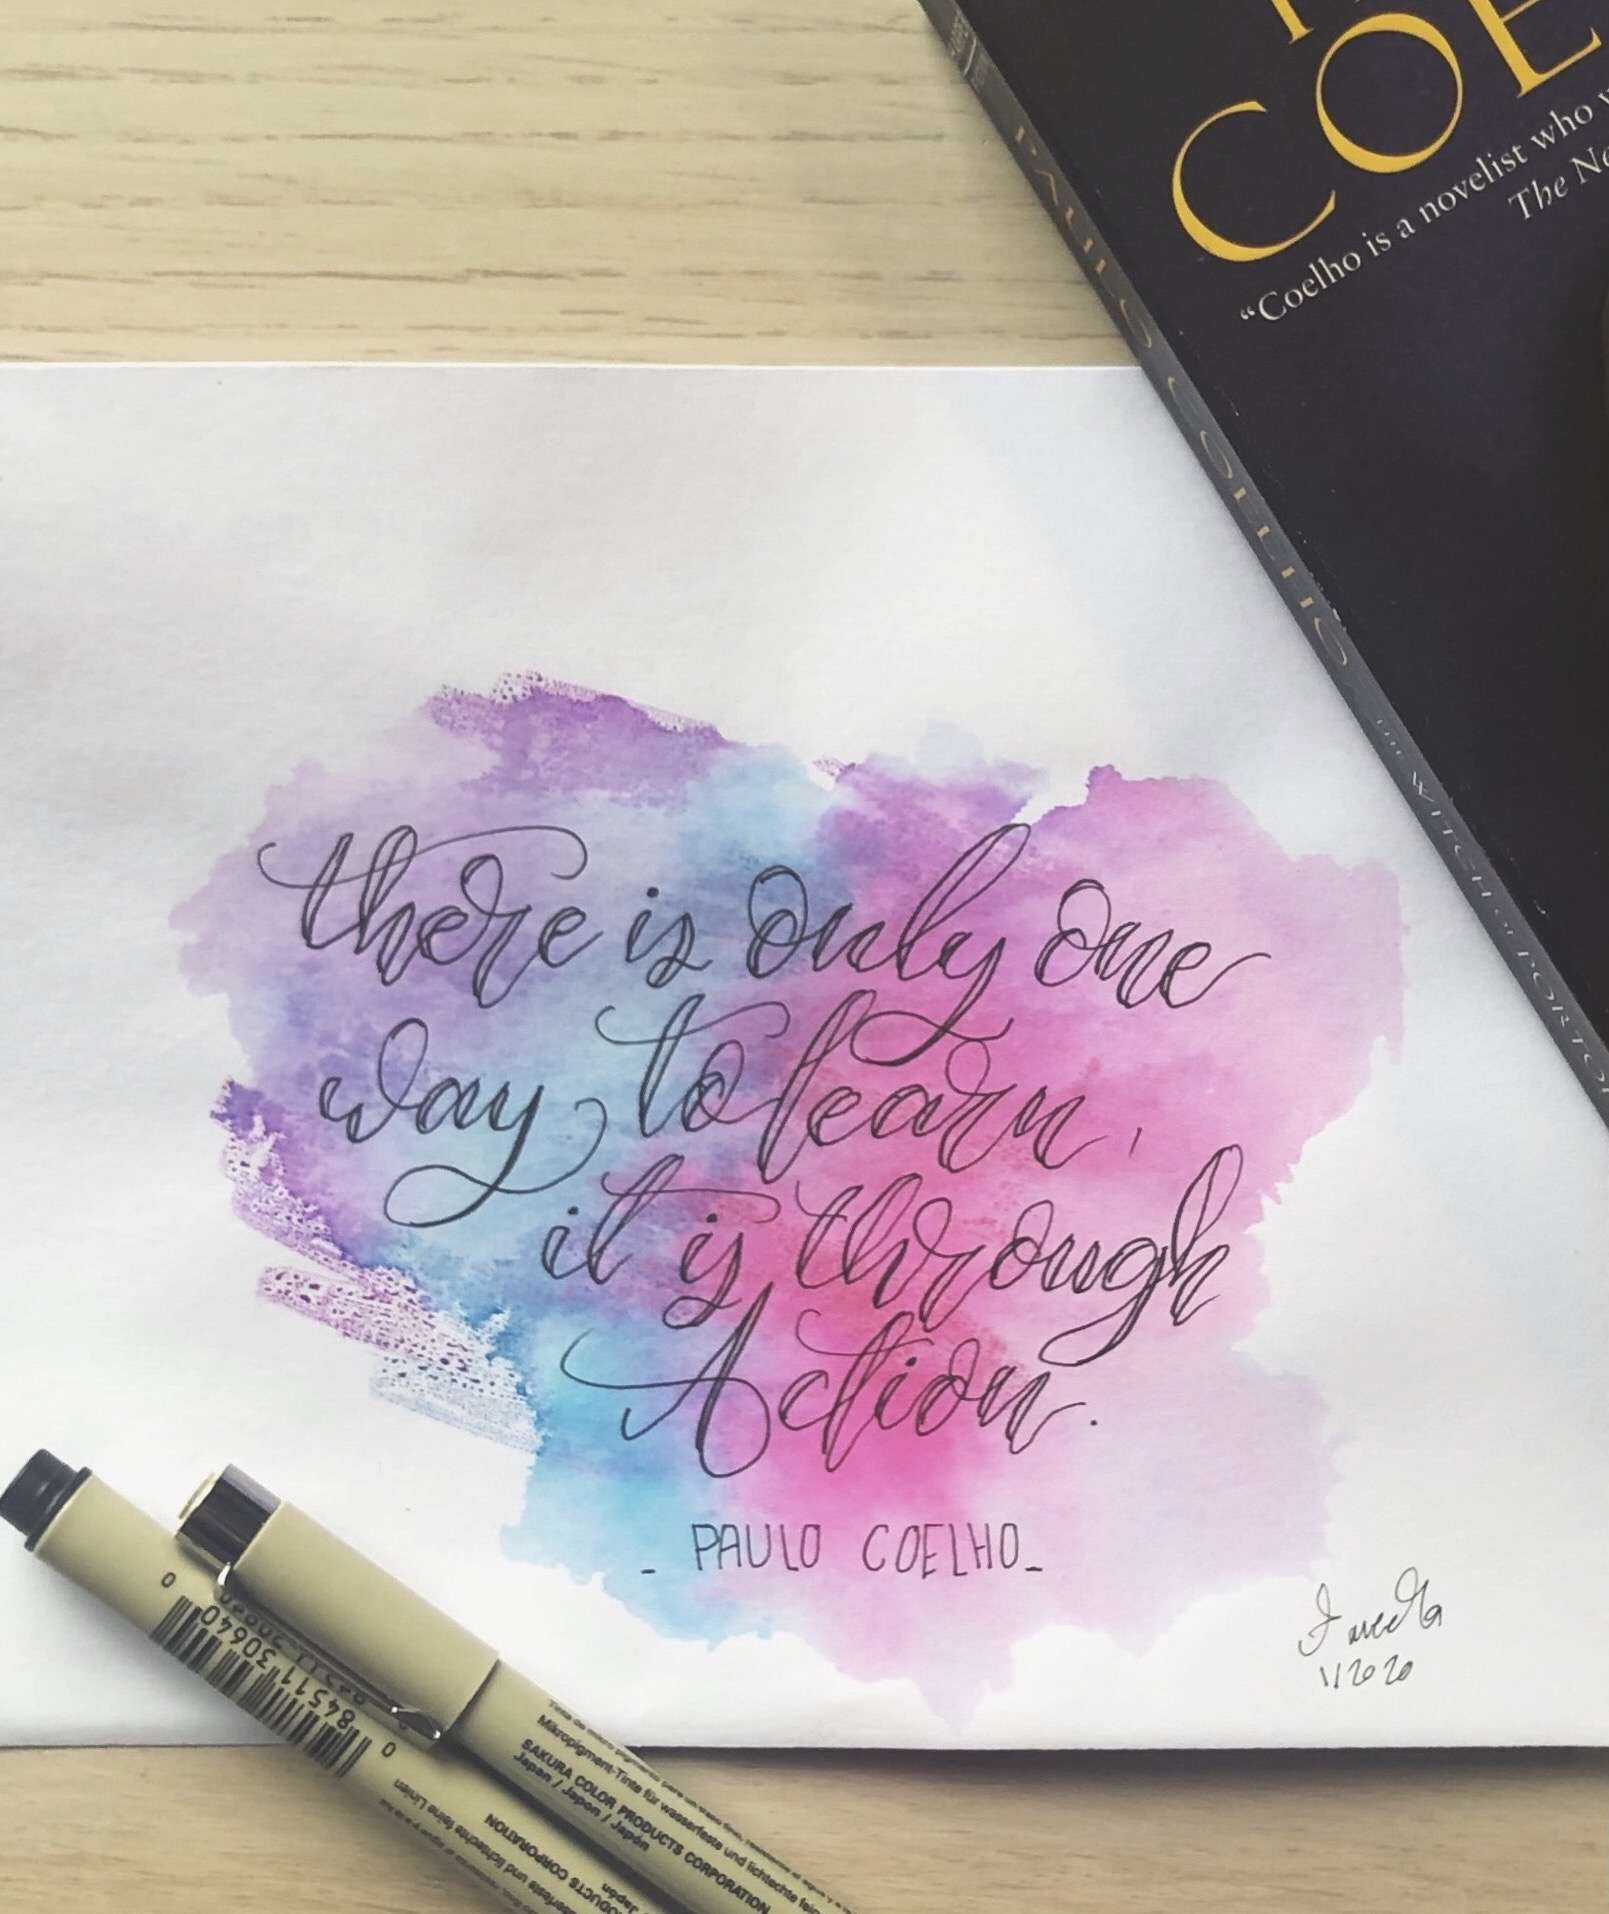 COE
"Coelho is a novelist who
The Ne
PAULO COELHO
THE WITCH OF PORTO
there is only one
way to learn,
it is through
Action.
- PAULO COELHO -
1/2020
0 84511 30640 0
Mikropigment-Tinte für wasserfeste und lichtechte fein
SAKURA COLOR PRODUCTS CORPORATION
Japan / Japon / Japón
und lichtechte feine Linien
DUCTS CORPORATION
Japón